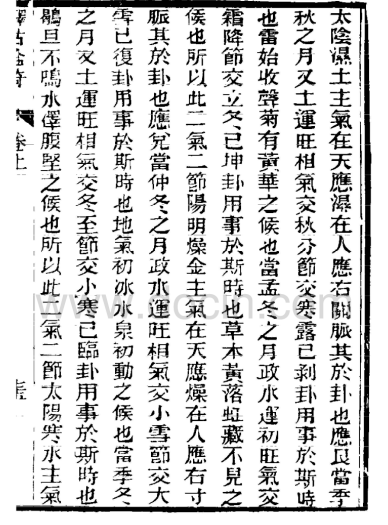 太陰濕土主氣在天應濕在人應右關脈其於卦也應艮當季
秋之月又土運旺相氣交秋分節交寒露已剥卦用事於斯時
也雷始收聲菊有黃華之候也當孟冬之月政水運初旺氣交
霜降節交立冬已坤卦用事於斯時也草木黃落虹藏不見之
候也所以此二氣二節陽明燥金主氣在天應燥在人應右寸
脈其於卦也應兌當仲冬之月政水運旺相氣交小雪節交大
雪已復卦用事於斯時也地氣初冰水泉初動之候也當季冬
之月又土運旺相氣交冬至節交小寒已臨卦用事於斯時也
鶡旦不鳴水澤腹堅之候也所以此二氣二節太陽寒水主氣
卷上